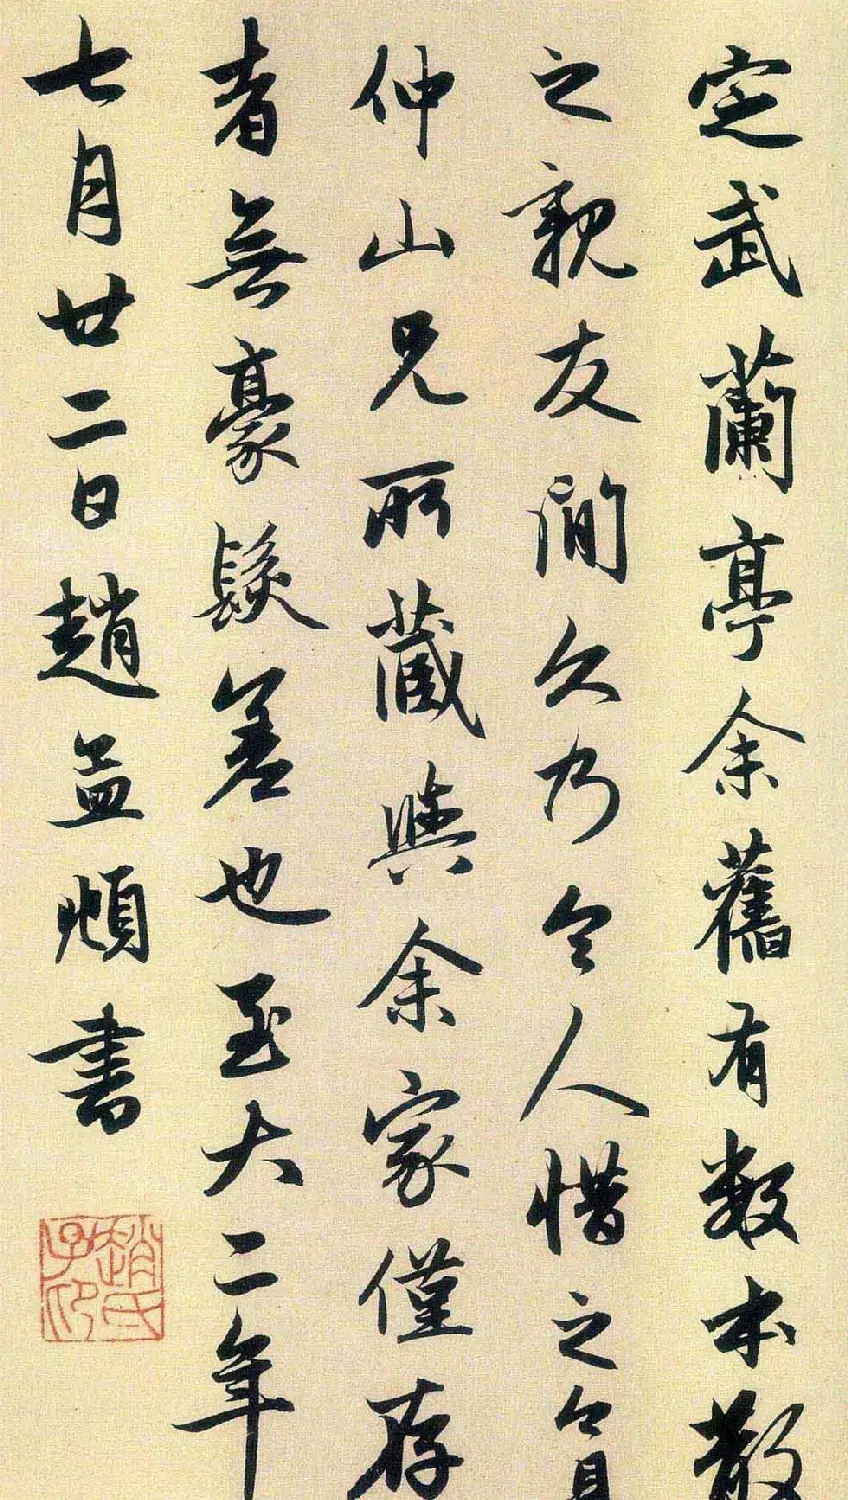 定武蘭亭余舊有數本散
之親友間久乃令人惜之今見
仲山兄所藏與余家僅存
者無豪髮差也至大二年
七月廿二日趙孟頫書
趙氏子印